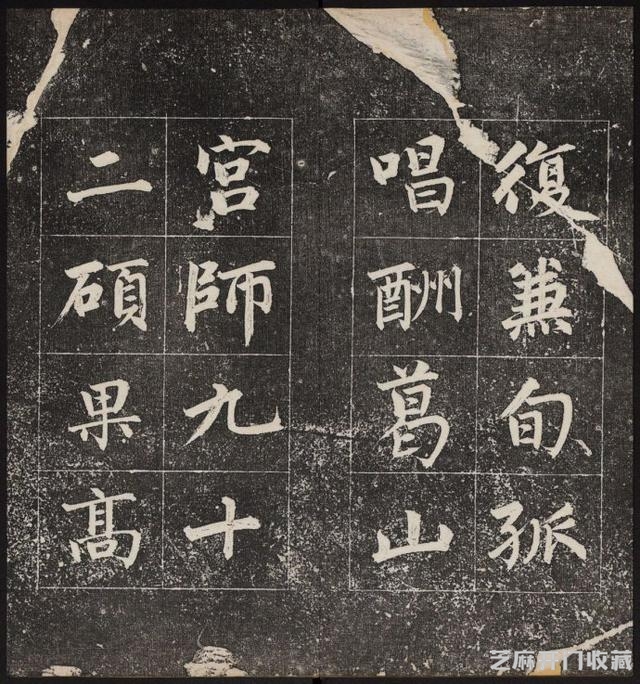 復兼旬孤
唱酬葛山
宮師九十
二碩果高
芝麻开门收藏